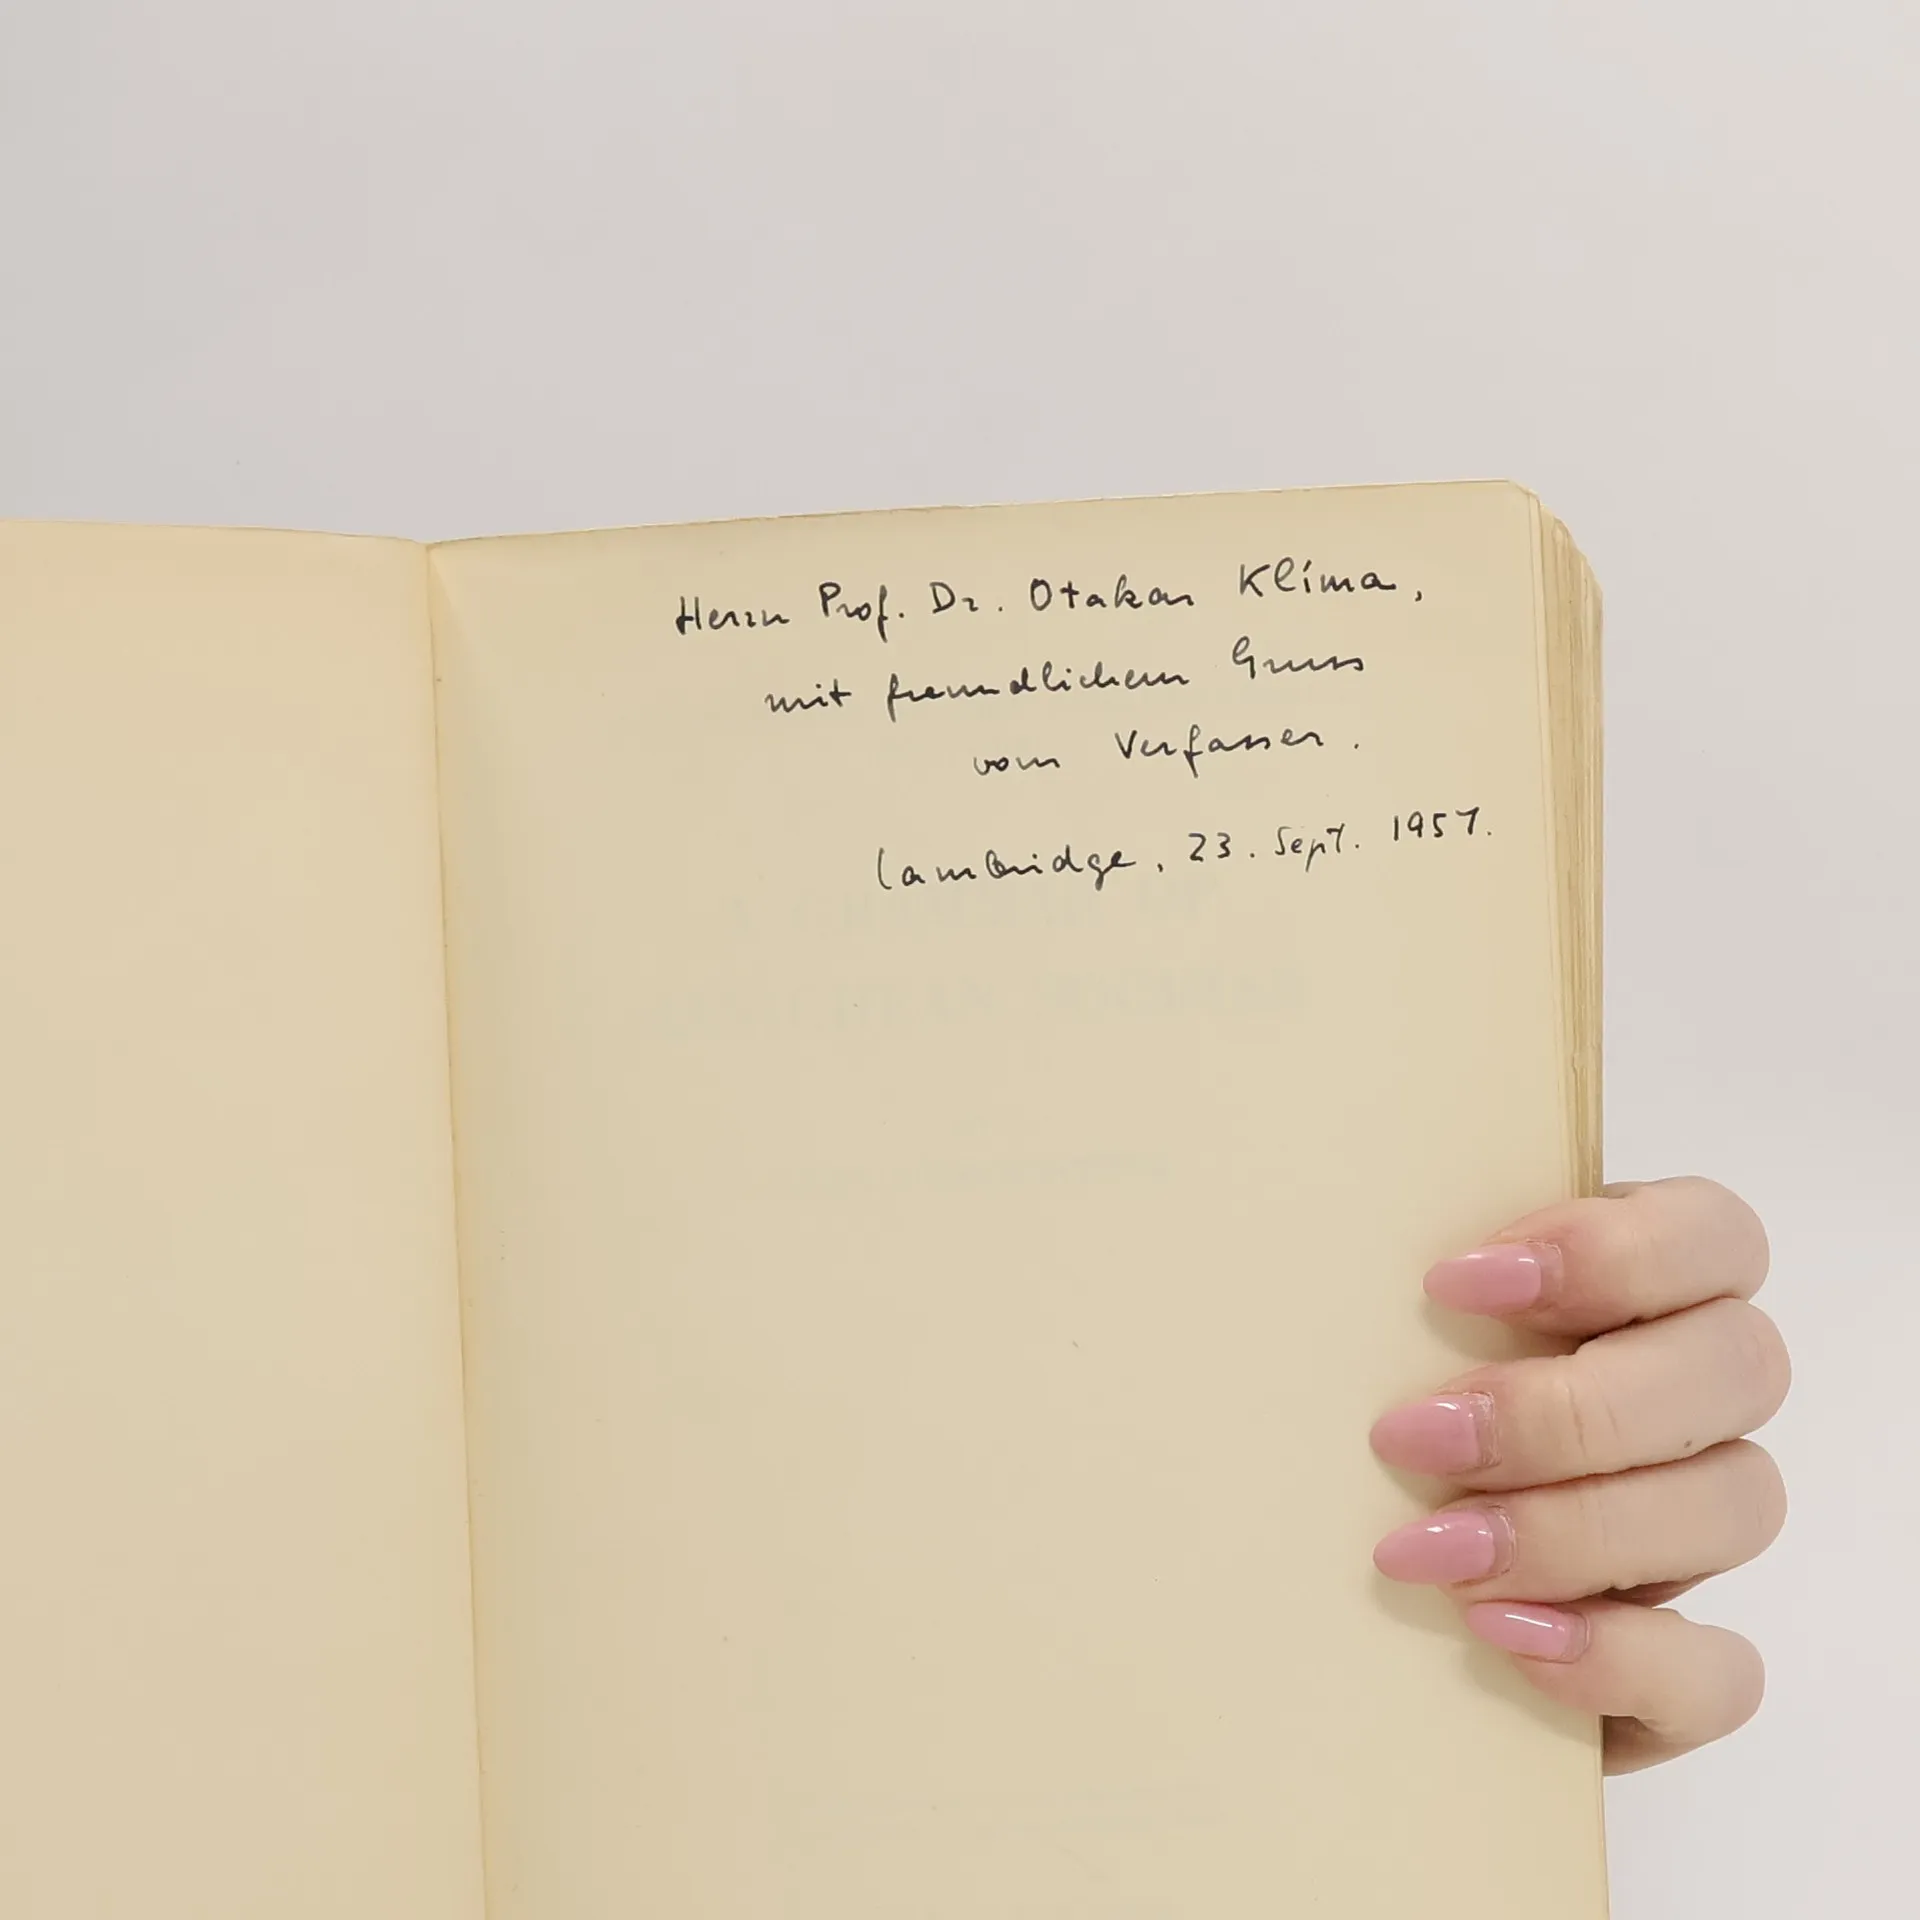 Herrn Prof. Dr. Otakar Klíma,
mit freundlichem Gruss
vom Verfasser.
Cambridge, 23. Sept. 1957.